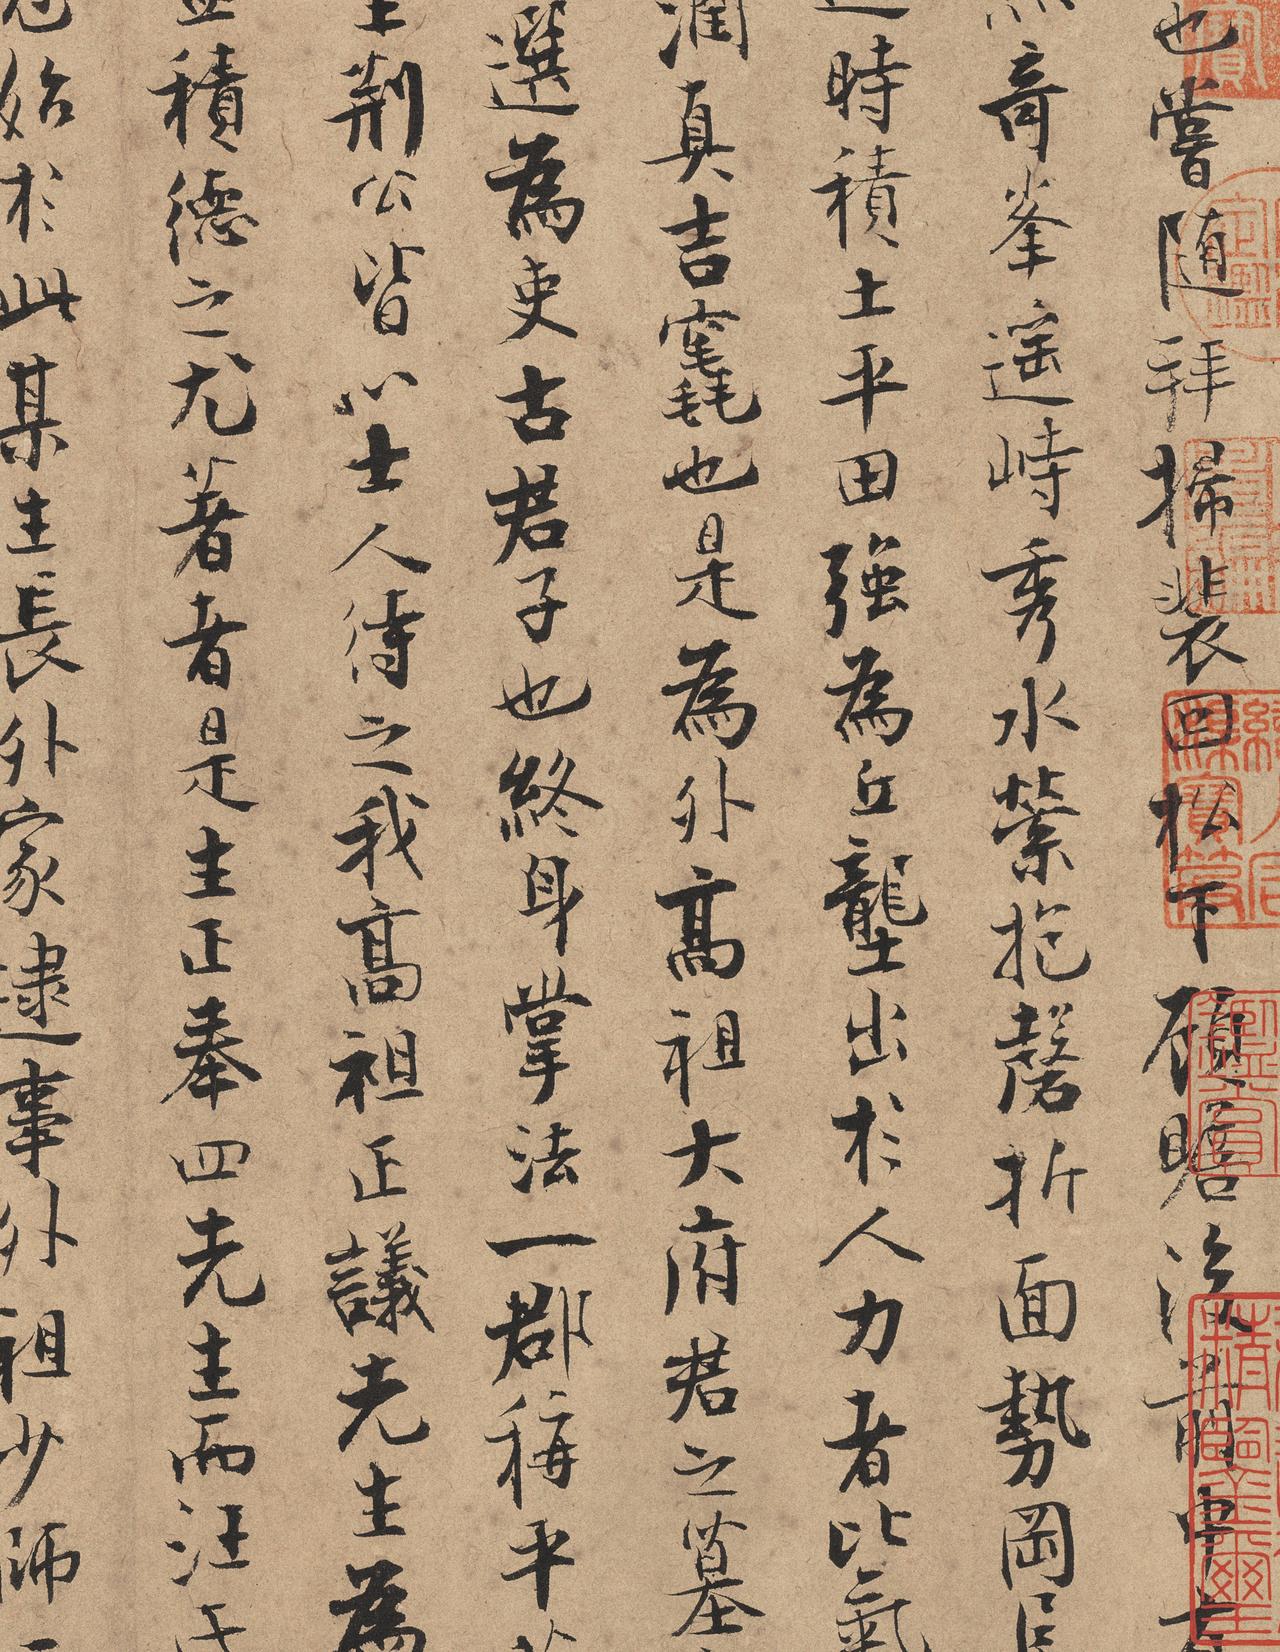 也嘗随拜掃裴回松下顧瞻
奇峯遥峙秀水縈抱磬折面勢岡
時積土平田強為丘壟出於人力者比氣
潤真吉竁也是為外高祖大府君之墓
選為吏古君子也終身掌法一郡稱平
荆公皆以士人待之我高祖正議先生為
積德之尤著者是生正奉四先生而汪氏
始於此某生長外家逮事外祖少師